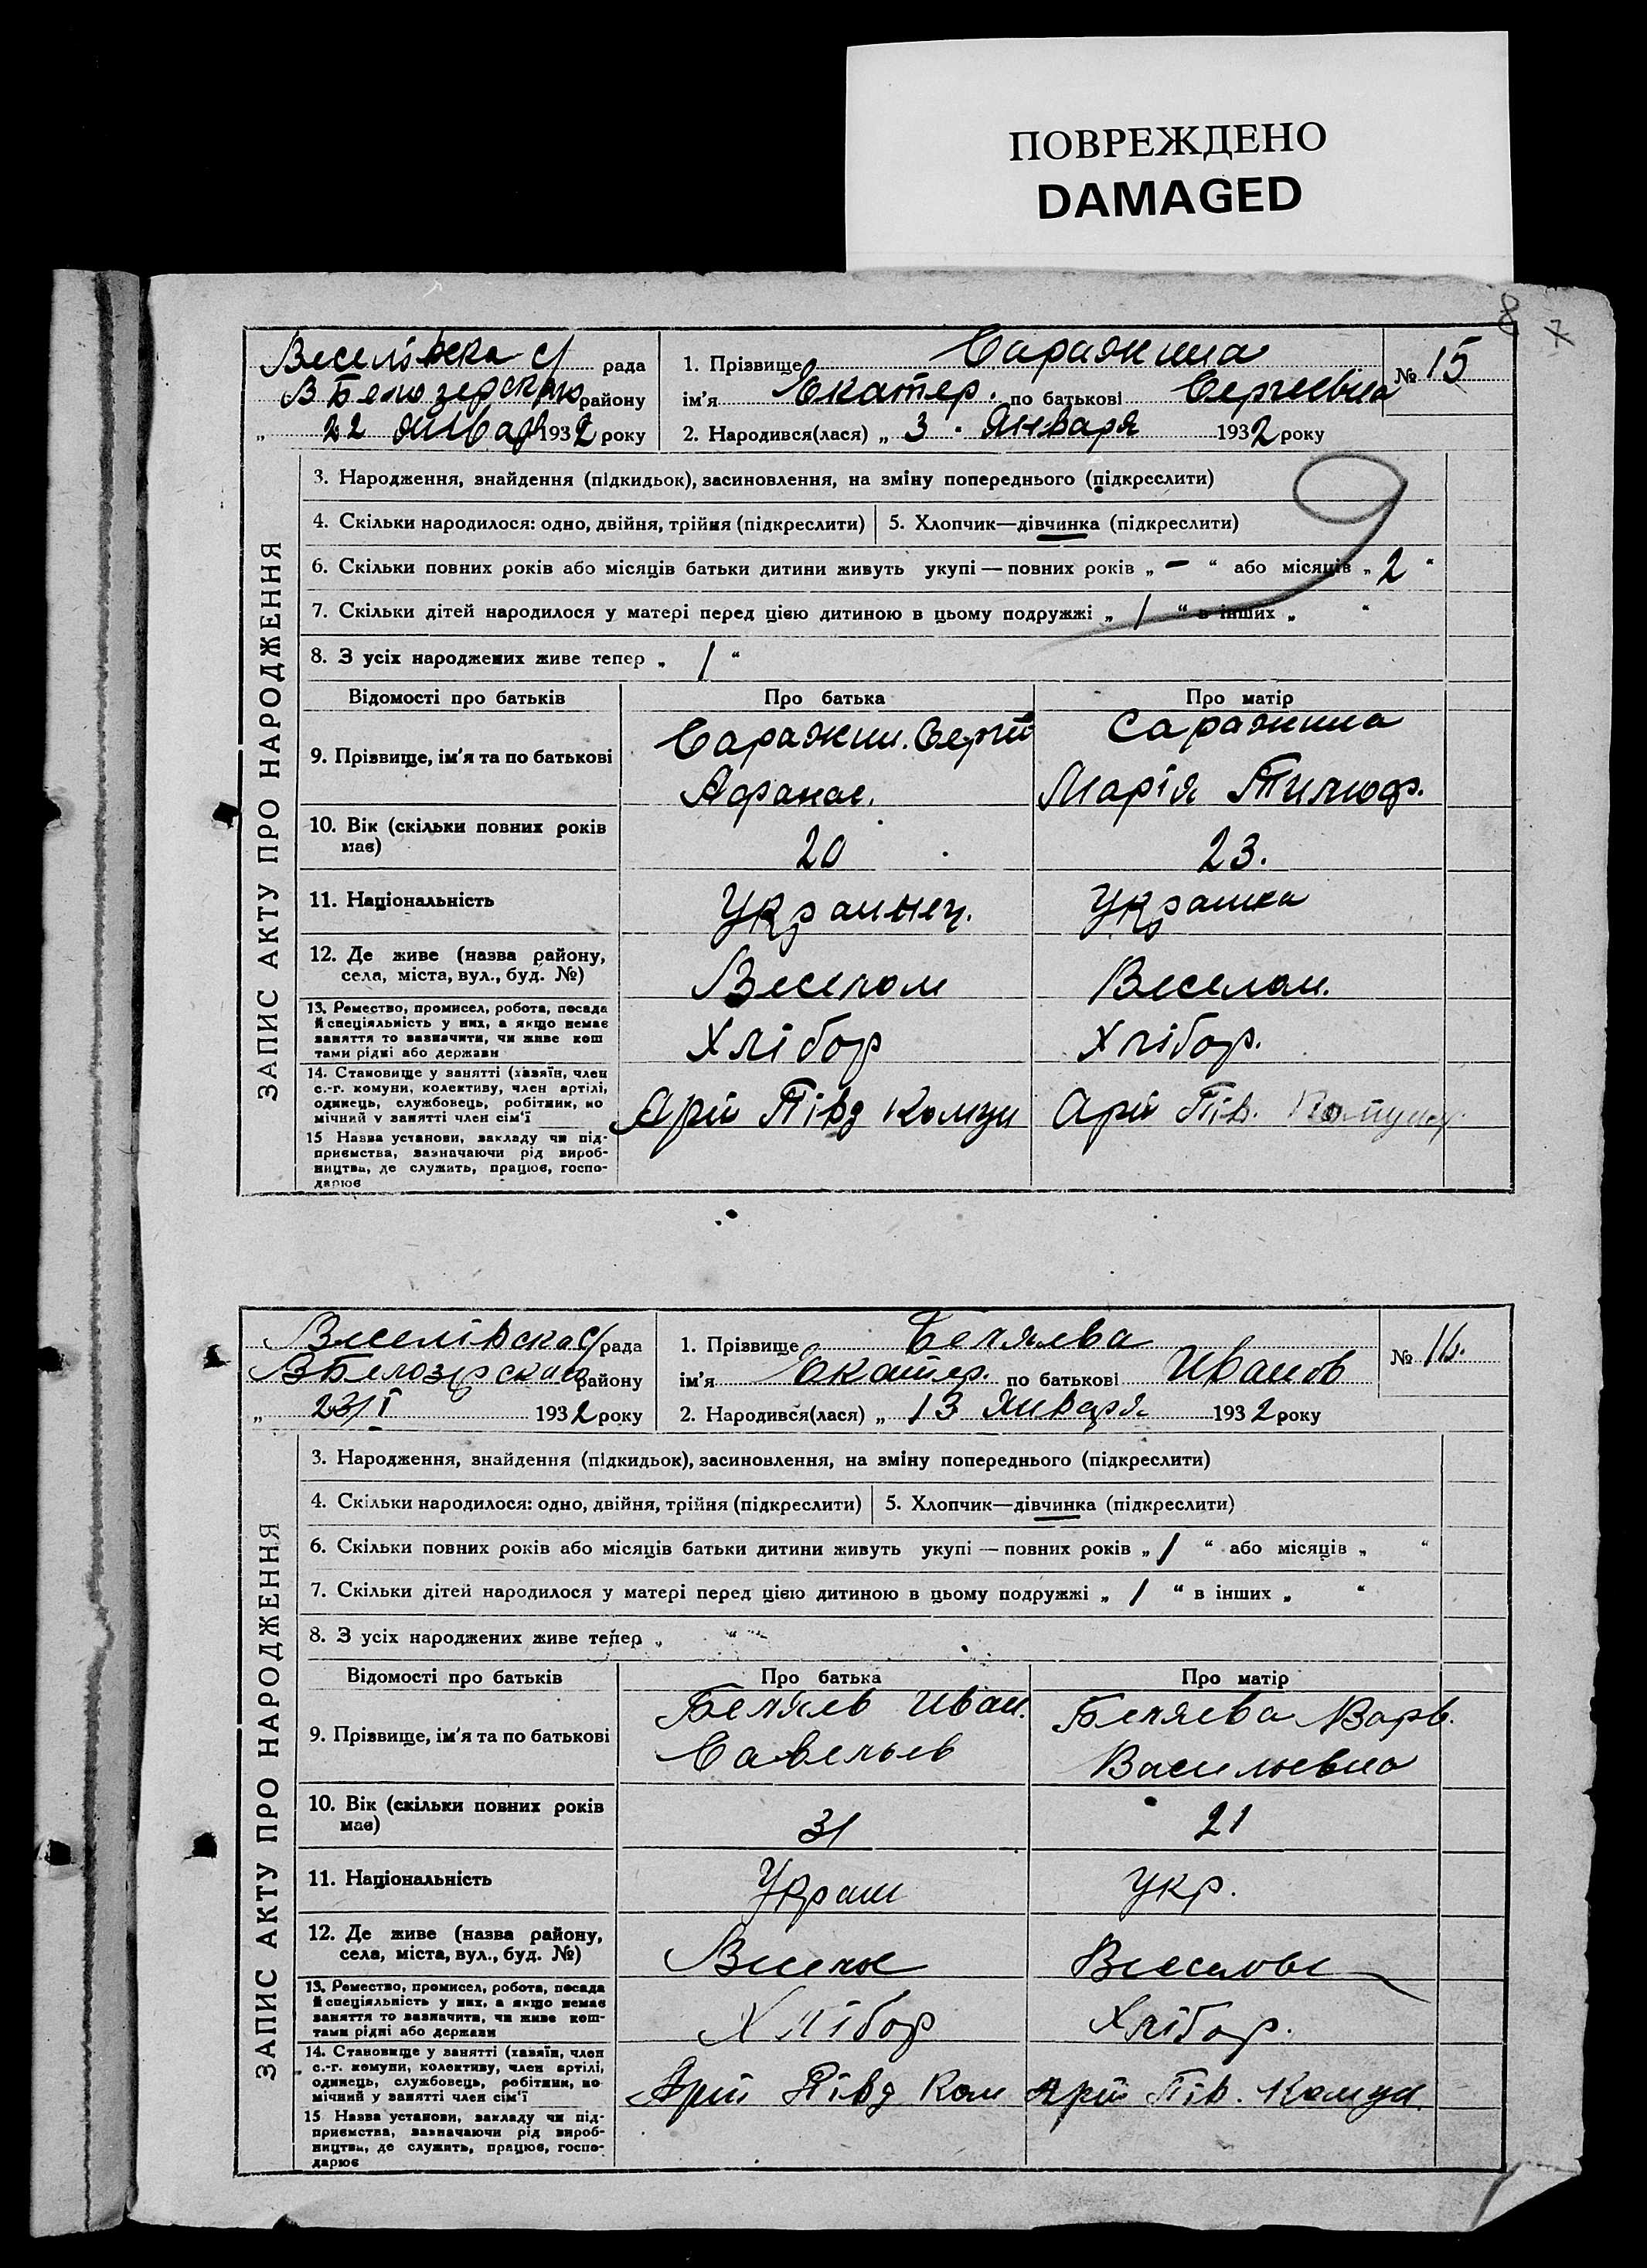 ПОВРЕЖДЕНО
DAMAGED
8 7
Веселівска с/ рада
В Белозерского району
„ 22 января 1932 року
1. Прізвище Саражина
ім'я Екатер. по батькові Сергеевна
2. Народився(лася) „ 3 . Января 1932 року
№ 15
ЗАПИС АКТУ ПРО НАРОДЖЕННЯ
3. Народження, знайдення (підкидьок), засиновлення, на зміну попереднього (підкреслити)
9
4. Скільки народилося: одно, двійня, трійня (підкреслити) 5. Хлопчик—дівчинка (підкреслити)
6. Скільки повних років або місяців батьки дитини живуть укупі — повних років „ – “ або місяців „ 2 “
7. Скільки дітей народилося у матері перед цією дитиною в цьому подружжі „ 1 “ в інших „ “
8. З усіх народжених живе тепер „ 1 “
Відомості про батьків Про батька Про матір
9. Прізвище, ім'я та по батькові
Саражин. Сергій
Афанас.
Саражина
Марія Тимоф.
10. Вік (скільки повних років
має)
20 23.
11. Національність Украинец. Украинка
12. Де живе (назва району,
села, міста, вул., буд. №)
Веселом Веселом.
13. Ремество, промисел, робота, посада
й спеціяльність у них, а якщо немає
заняття то зазначити, чи живе кош
тами рідні або держави
Хлібор Хлібор.
14. Становище у занятті (хазяїн, член
с.-г. комуни, колективу, член артілі,
одинець, службовець, робітник, по
мічний у занятті член сім'ї
Арті Півд Комун Арті Пів. Комун
15 Назва установи, закладу чи під-
приємства, вазначаючи рід вироб-
ництва, де служить, працює, госпо-
дарює
Веселівска с/ рада
В Белозерского району
„ 23/I 1932 року
1. Прізвище Беляева
ім'я Екатер. по батькові Иванов
2. Народився(лася) „ 13 Января 1932 року
№ 16.
ЗАПИС АКТУ ПРО НАРОДЖЕННЯ
3. Народження, знайдення (підкидьок), засиновлення, на зміну попереднього (підкреслити)
4. Скільки народилося: одно, двійня, трійня (підкреслити) 5. Хлопчик—дівчинка (підкреслити)
6. Скільки повних років або місяців батьки дитини живуть укупі — повних років „ 1 “ або місяців „ “
7. Скільки дітей народилося у матері перед цією дитиною в цьому подружжі „ 1 “ в інших „ “
8. З усіх народжених живе тепер „ “
Відомості про батьків Про батька Про матір
9. Прізвище, ім'я та по батькові
Беляев Иван.
Савельев
Беляева Варв.
Васильевна
10. Вік (скільки повних років
має)
31 21
11. Національність Украин Укр.
12. Де живе (назва району,
села, міста, вул., буд. №)
Веселое Веселое
13. Ремество, промисел, робота, посада
й спеціяльність у них, а якщо немає
заняття то зазначити, чи живе кош-
тами рідні або держави
Хлібор Хлібор.
14. Становище у занятті (хазяїн, член
с.-г. комуни, колективу, член артілі,
одинець, службовець, робітник, по
мічний у занятті член сім'ї
Арті Півд Ком Арті Пів. Комун.
15 Назва установи, закладу чи під-
приємства, вазначаючи рід вироб-
ництва, де служить, працює, госпо-
дарює